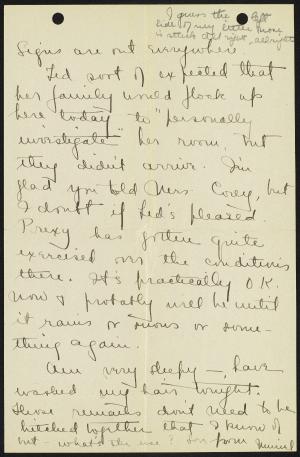 I guess the left
side of my letter more
is stuck all right, allright
Signs are out everywhere.
Led sort of expected that
her family would flock up
here today to "personally
investigate" her room, but
they didn't arrive. I'm
glad you told Mrs. Corey, but
I doubt if Led's pleased.
Prexy has gotten quite
exercised over the conditions
there. It's practically O.K.
now & probably will be until
it rains or snows or some-
thing again.
Am very sleepy — have
washed my hair tonight.
Those remarks don't need to be
hitched together that I know of
but – what's the use? In form
Muriel